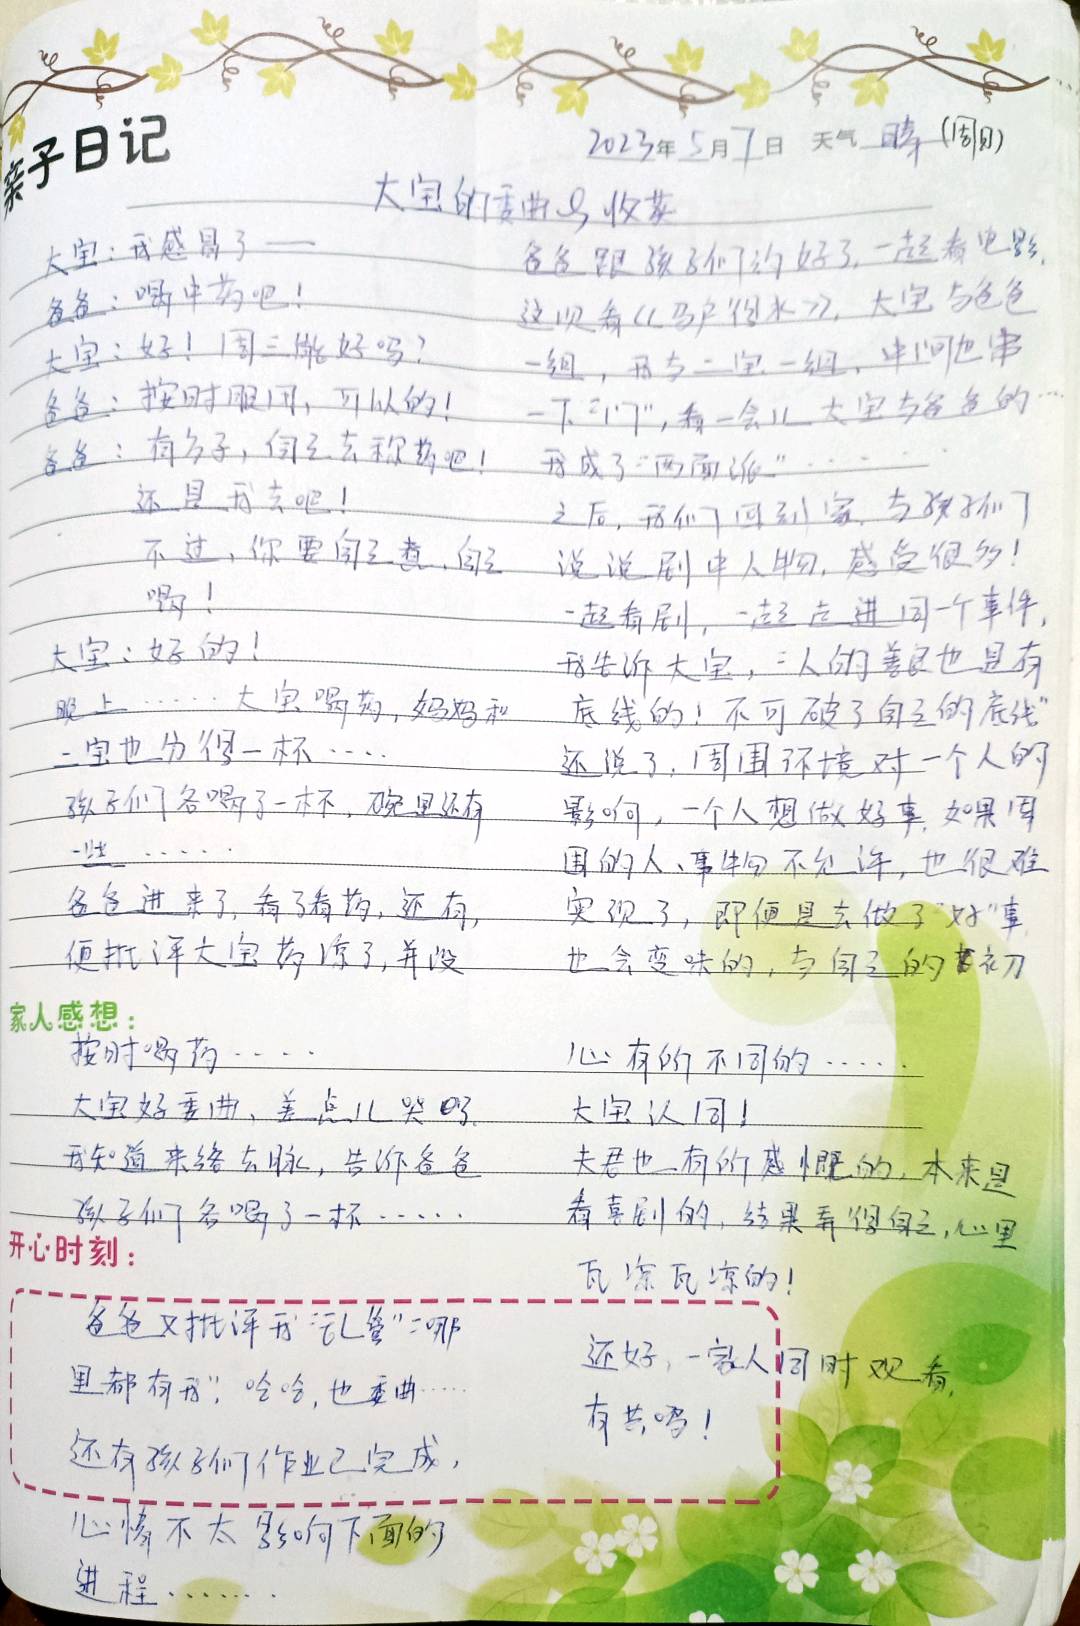 亲子日记
2023年5月7日 天气 晴(周日)
大宝的委曲与收获
大宝：我感冒了——
爸爸：喝中药吧！
大宝：好！周三能好吗？
爸爸：按时服用，可以的！
爸爸：有方子，自己去称药吧！
还是我去吧！
不过，你要自己煮，自己
喝！
大宝：好的！
晚上……大宝喝药，妈妈和
二宝也分得一杯……
孩子们各喝了一杯，碗里还有
一些……
爸爸进来了，看了看药，还有，
便批评大宝药凉了，并没
家人感想：
按时喝药……
大宝好委曲，差点儿哭
我知道来络去脉，告诉爸爸
孩子们各喝了一杯……
开心时刻：
爸爸又批评我"乱管""哪
里都有我"，哈哈，也委曲……
还有孩子们作业已完成，
心情不太影响下面的
进程……
爸爸跟孩子们约好了，一起看电影，
这次看《马户得水》，大宝与爸爸
一组，我与二宝一组，中间也串
一下"门"，看一会儿大宝与爸爸的…
我成了"两面派"……
之后，我们回到家，与孩子们
说说剧中人物，感受很多！
一起看剧，一起走进同一个事件，
我告诉大宝，"人的善良也是有
底线的！不可破了自己的底线"
还说了，周围环境对一个人的
影响，一个人想做好事，如果周
围的人、事物不允许，也很难
实现了，即便是去做了"好"事，
也会变味的，与自己的初
心有所不同的……
大宝认同！
夫君也有所感慨的，本来是
看喜剧的，结果弄得自己，心里
瓦凉瓦凉的！
还好，一家人同时观看，
有共鸣！